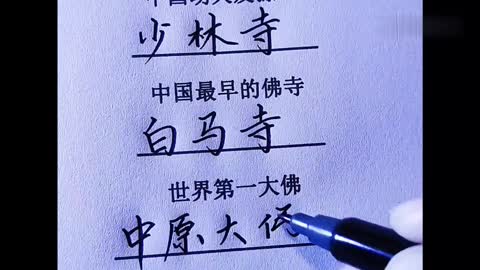 少林寺
中国最早的佛寺
白马寺
世界第一大佛
中原大佛